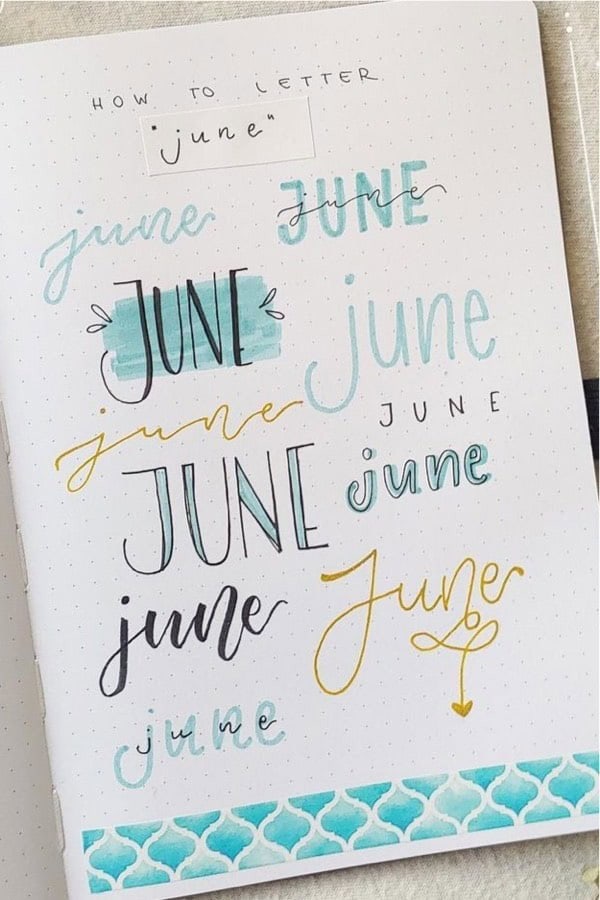 HOW TO LETTER
"june"
june
JUNE
june
JUNE
june
june
JUNE
JUNE
june
june
June
june
june